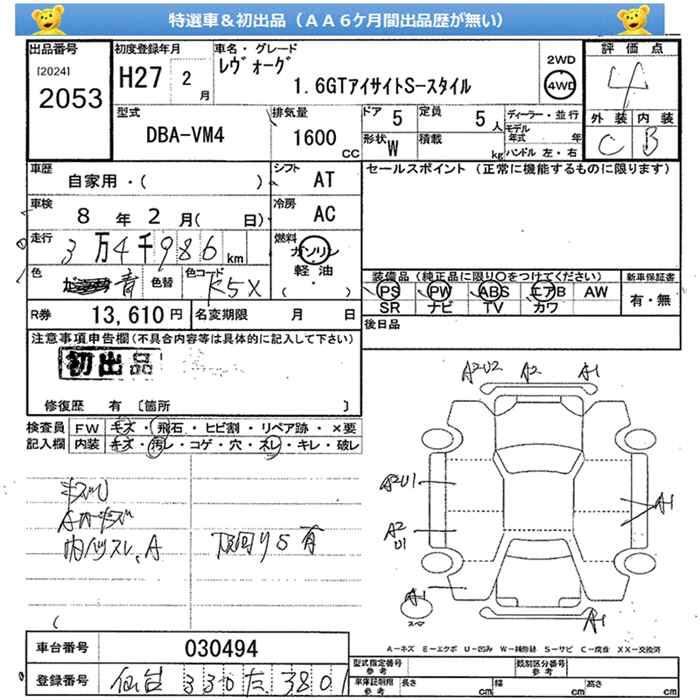 特選車＆初出品（ＡＡ６ケ月間出品歴が無い）
出品番号
[2024]
2053
初度登録年月
H27 2 月
車名・グレード
レヴォーグ
1.6GTアイサイトS－スタイル
2WD
4WD
評価点
4
外装 内装
C B
型式
DBA-VM4
排気量
1600 CC
ドア 5
定員 5 人
形状 W
積載 kg
ディーラー・並行
モデル年式 年
ハンドル 左・右
車歴
自家用・( )
シフト AT
セールスポイント（正常に機能するものに限ります）
車検
8 年 2 月( 日)
冷房 AC
走行
3万4千986 km
燃料
ガソリン
軽油
( ・ )
色 青
色替
色コード K5X
装備品（純正品に限り○をつけてください）
新車保証書
PS PW ABS エアB AW
有・無
SR ナビ TV カワ
R券 13,610円
名変期限 月 日
後日品
注意事項申告欄(不具合内容等は具体的に記入して下さい)
初出品
修復歴 有 〔箇所 〕
検査員記入欄
FW キズ・飛石・ヒビ割・リペア跡・×要
内装 キズ・汚レ・コゲ・穴・スレ・キレ・破レ
A2U2 A2 A1
A2U1
A2
U1
A1
A1
A1
キズU
内ハゲスレ、A
下回りS有
スペア
A－キズ E－エクボ U－凹み W－補修跡 S－サビ C－腐食 XX－交換済
車台番号 030494
登録番号 仙台 330 た 3801
型式指定番号
参考
類別区分番号
参考
車庫証明限
参考
長さ cm 幅 cm 高さ cm